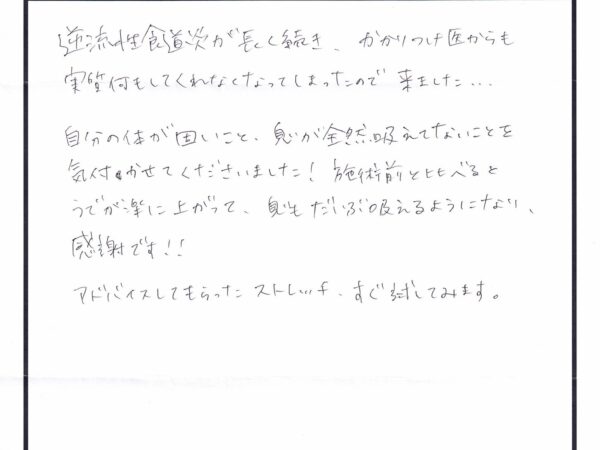 逆流性食道炎が長く続き、かかりつけ医からも
実質何もしてくれなくなってしまったので 来ました…
自分の体が固いこと、息が全然吸えてないことを
気付かせてくださいました！施術前と比べると
うでが楽に上がって、息もだいぶ吸えるようになり、
感謝です！！
アドバイスしてもらったストレッチ、すぐ試してみます。